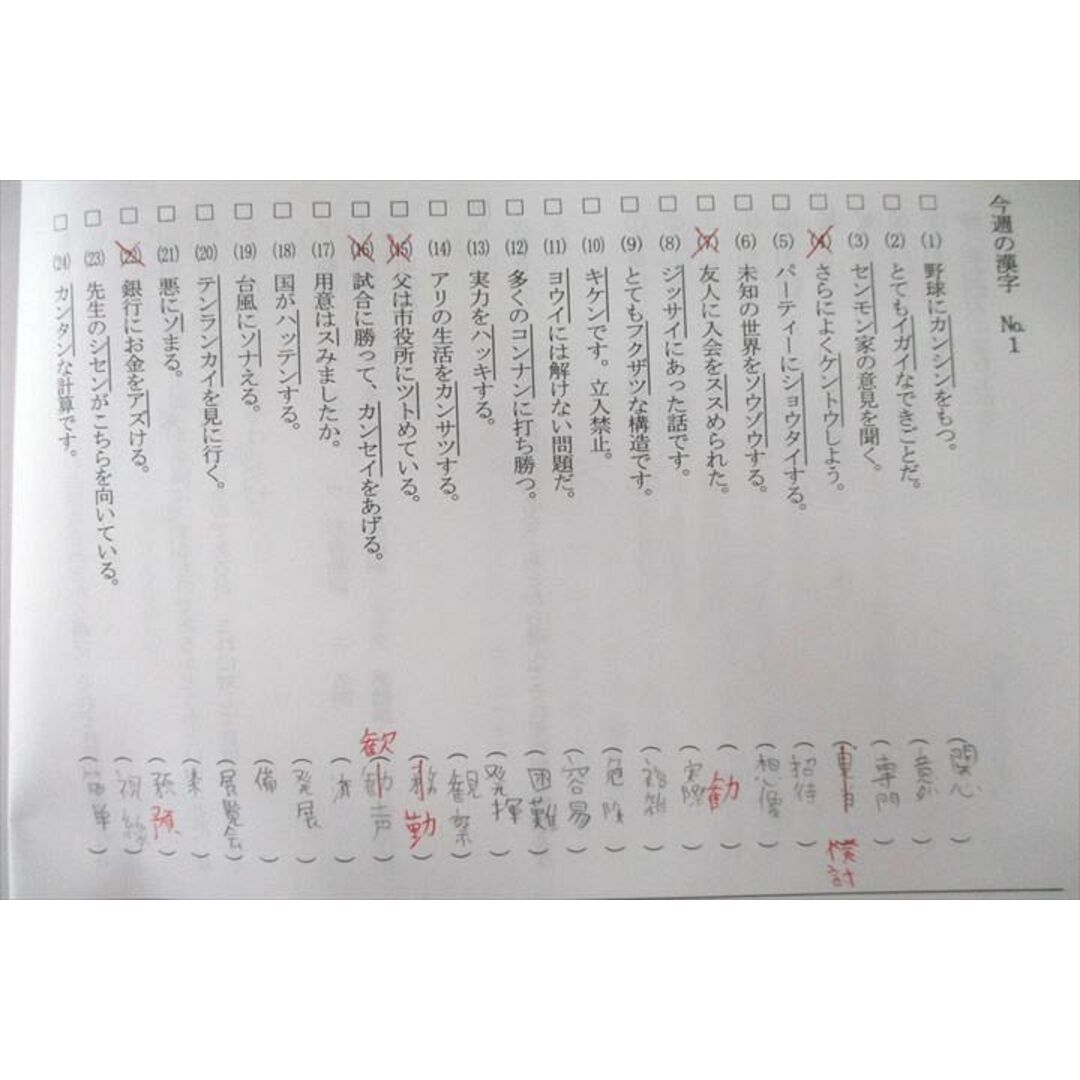 今週の漢字　№1
(1) 野球にカンシンをもつ。（関心）
(2) とてもイガイなできごとだ。（意外）
(3) センモン家の意見を聞く。（専門）
(4) さらによくケントウしよう。（　）検討
(5) パーティーにショウタイする。（招待）
(6) 未知の世界をソウゾウする。（想像）
(7) 友人に入会をススめられた。（勧）
(8) ジッサイにあった話です。（実際）
(9) とてもフクザツな構造です。（複雑）
(10) キケンです。立入禁止。（危険）
(11) ヨウイには解けない問題だ。（容易）
(12) 多くのコンナンに打ち勝つ。（困難）
(13) 実力をハッキする。（発揮）
(14) アリの生活をカンサツする。（観察）
(15) 父は市役所にツトめている。（　）勤
(16) 試合に勝って、カンセイをあげる。（勧声）歓
(17) 用意はスみましたか。（済）
(18) 国がハッテンする。（発展）
(19) 台風にソナえる。（備）
(20) テンランカイを見に行く。（展覧会）
(21) 悪にソまる。（　）
(22) 銀行にお金をアズける。（　）預
(23) 先生のシセンがこちらを向いている。（視線）
(24) カンタンな計算です。（簡単）